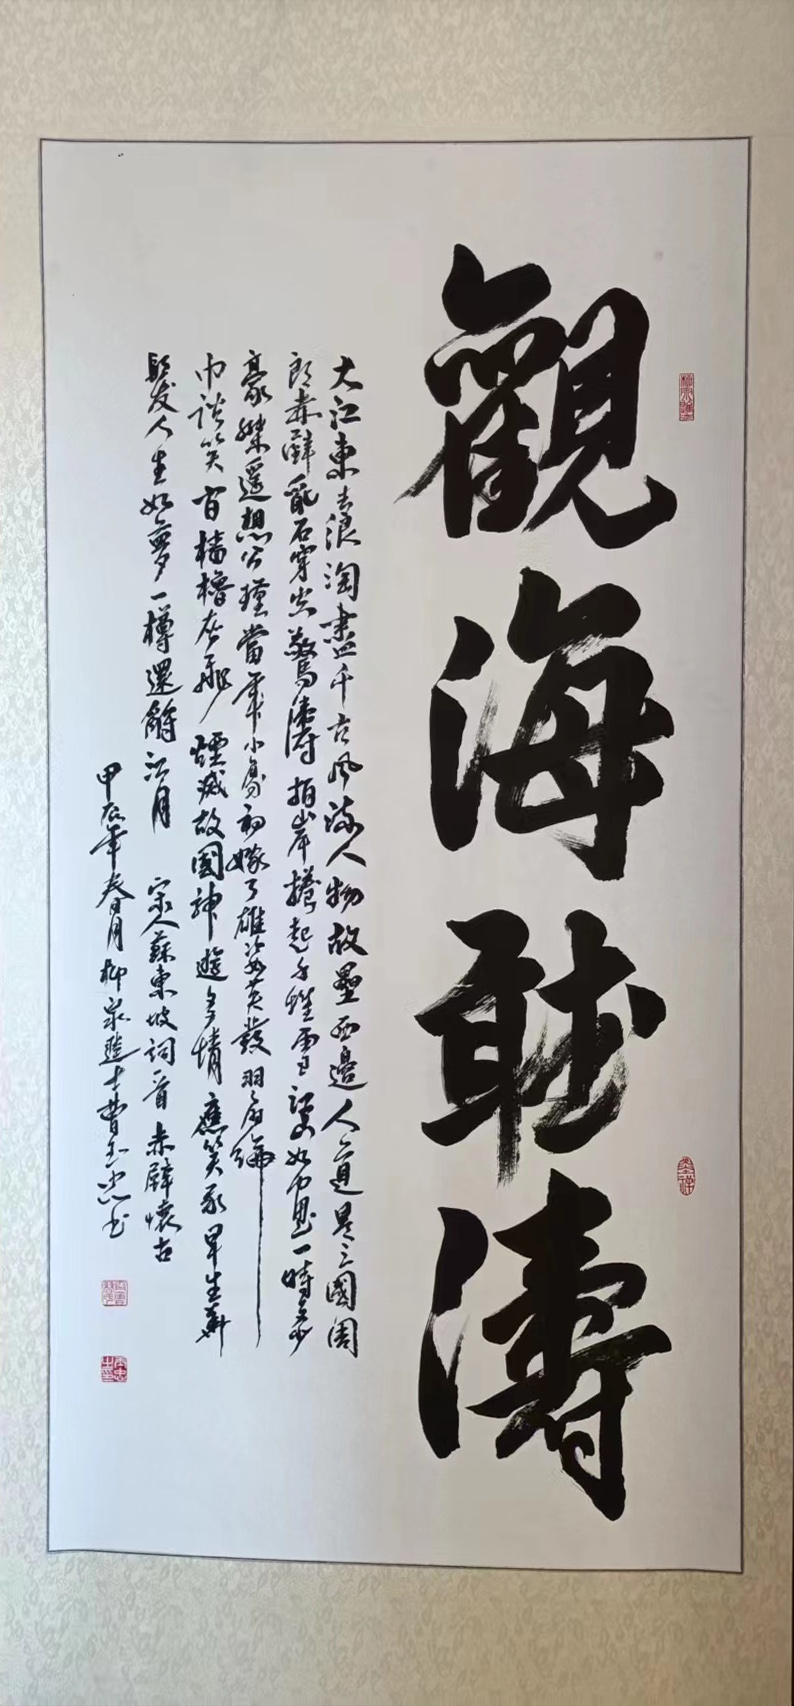 觀海聽濤
大江東去浪淘盡千古風流人物故壘西邊人道是三國周
郎赤壁亂石穿空驚濤拍岸捲起千堆雪江山如畫一時多少
豪傑遙想公瑾當年小喬初嫁了雄姿英發羽扇綸
巾談笑間檣櫓灰飛煙滅故國神遊多情應笑我早生華
髮人生如夢一樽還酹江月 宋人蘇東坡詞一首赤壁懷古
甲辰年春月柳泉隱士曹玉忠书